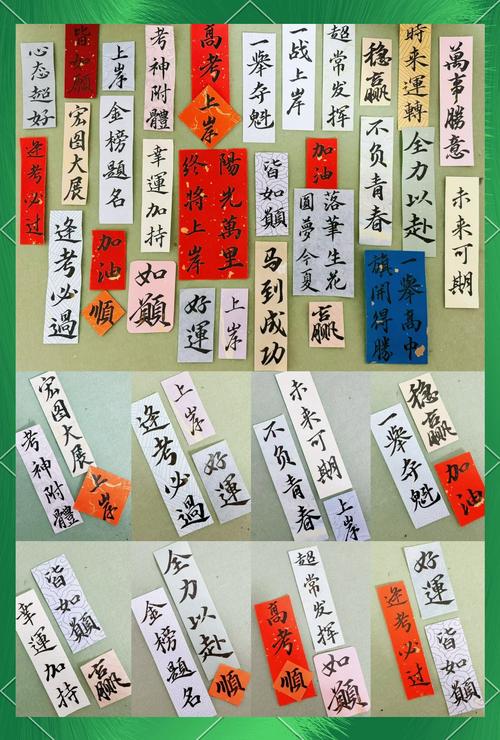 心态超好
皆如愿
上岸
考神附體
高考
上岸
一舉夺魁
一战上岸
超常发挥
稳赢
時来運轉
萬事勝意
逢考必过
宏图大展
金榜题名
幸運加持
陽光萬里
终将上岸
皆如願
加油
落筆生花
圆夢今夏
不负青春
全力以赴
未来可期
逢考必過
加油
順
如願
好運
上岸
马到成功
赢
一舉高中
旗開得勝
宏图大展
考神附體
上岸
上岸
逢考必過
好運
未来可期
不负青春
上岸
稳赢
一舉夺魁
加油
皆如願
幸運加持
赢
全力以赴
金榜题名
順
超常发挥
高考
順
如願
好運
逢考必过
皆如願